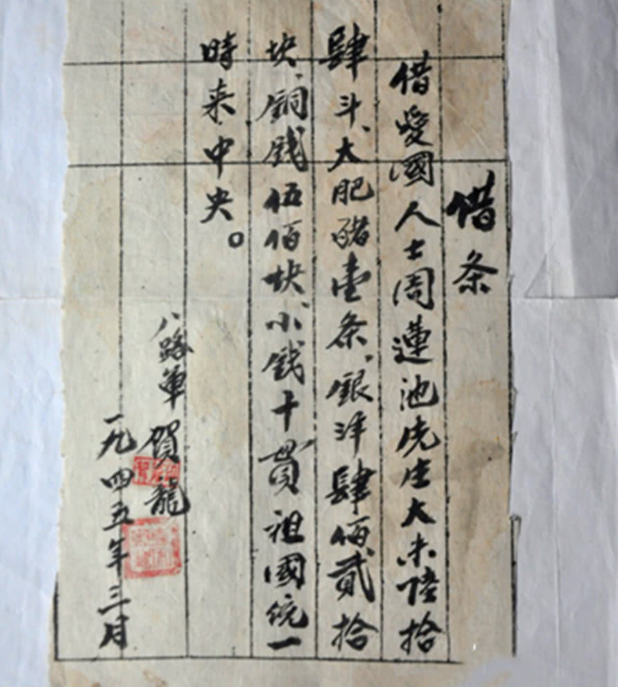 借条
借爱國人士周蓮池先生大米陸拾
肆斗、大肥豬壹条、銀洋肆佰貳拾
块、銅钱伍佰块、小钱十貫祖國統一
時来中央。
八路軍 賀龍
一九四五年三月